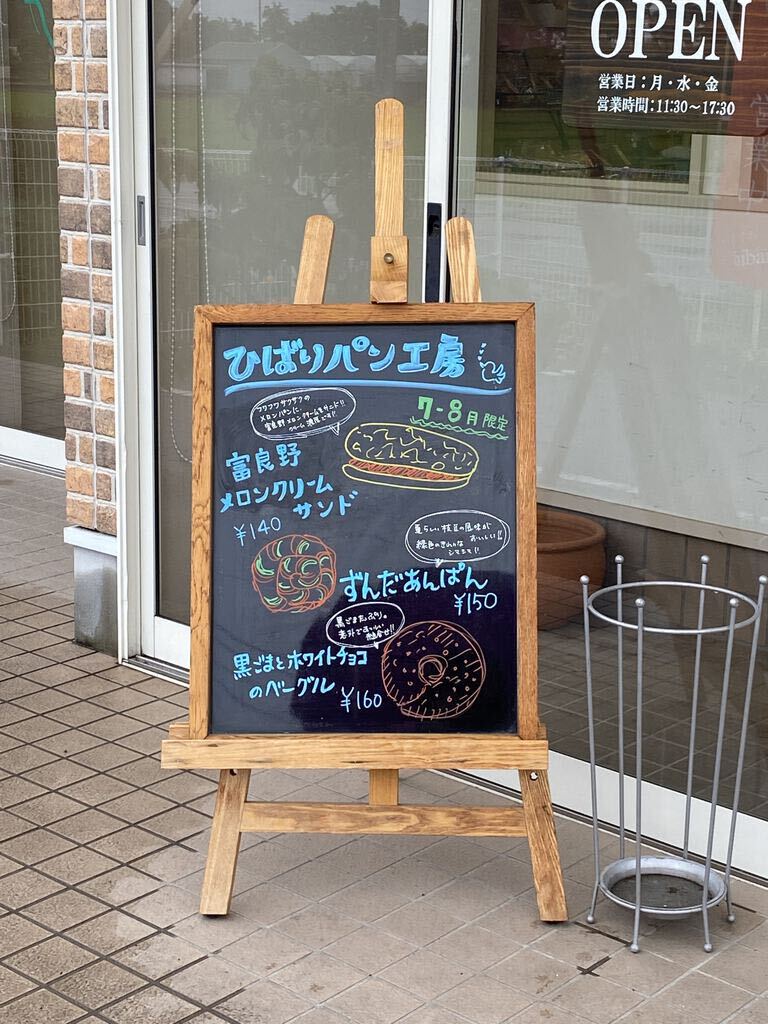 OPEN
営業日:月・水・金
営業時間:11:30～17:30
ひばりパン工房
7-8月限定
フワフワサクサクの
メロンパンに
富良野メロンクリームをサンド!!
富良野
メロンクリーム
サンド
¥140
夏らしい枝豆の風味が
緑色のきれいな おいしい!!
ずんだあんぱん
¥150
黒ごまたっぷり。
黒ごまとホワイトチョコ
のベーグル
¥160